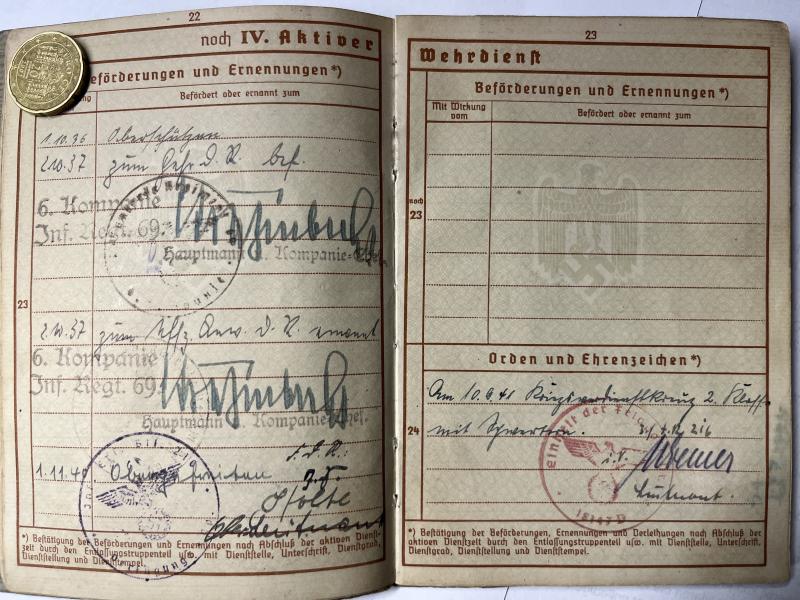 22
noch IV. Aktiver
Beförderungen und Ernennungen*)
Befördert oder ernannt zum
1.10.36 Oberschützen
2.10.37 zum Gefr. d. R. bef.
6. Kompanie
Inf. Regt. 69.
Hauptmann u. Kompanie-Chef.
23
2.10.37 zum Uffz. Anw. d. R. ernannt
6. Kompanie
Inf. Regt. 69.
Hauptmann u. Kompanie-Chef.
1.11.40 Obergefreiten
*) Bestätigung der Beförderungen und Ernennungen nach Abschluß der aktiven Dienst-
zeit durch den Entlassungstruppenteil usw. mit Dienststelle, Unterschrift, Dienstgrad,
Dienststellung und Dienststempel.
23
Wehrdienst
Beförderungen und Ernennungen*)
Mit Wirkung
vom
Befördert oder ernannt zum
noch
23
Orden und Ehrenzeichen*)
Am 10.9.41 Kriegsverdienstkreuz 2. Klasse
24
mit Schwertern.
i.V.
Leutnant.
18147 D
*) Bestätigung der Beförderungen, Ernennungen und Verleihungen nach Abschluß der
aktiven Dienstzeit durch den Entlassungstruppenteil usw. mit Dienststelle, Unterschrift,
Dienstgrad, Dienststellung und Dienststempel.